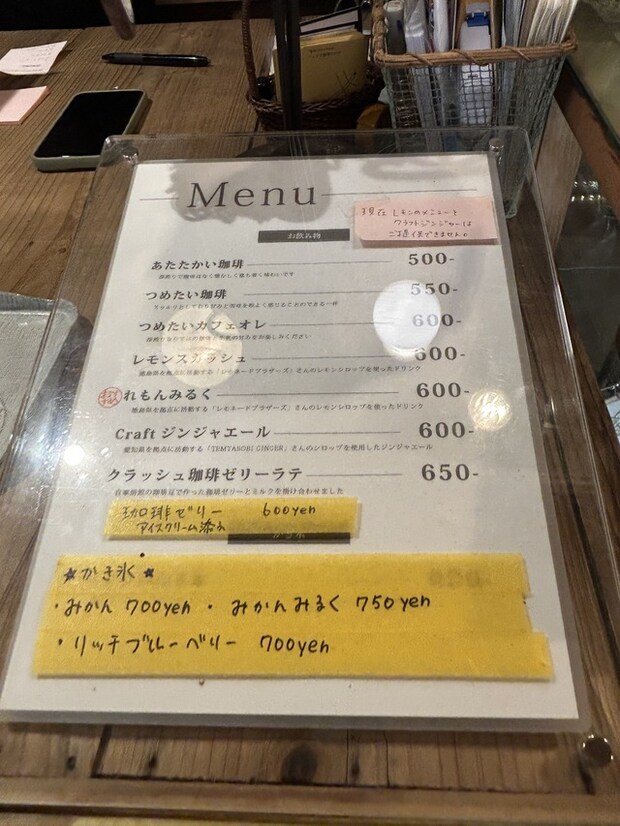 Menu
現在 レモンのメニューと
クラフトジンジャーは
ご提供できません。
お飲み物
あたたかい珈琲 500-
つめたい珈琲 550-
つめたいカフェオレ 600-
レモンスカッシュ 600-
徳島県を拠点に活動する「レモネードブラザーズ」さんのレモンシロップを使ったドリンク
おすすめ れもんみるく 600-
徳島県を拠点に活動する「レモネードブラザーズ」さんのレモンシロップを使ったドリンク
Craft ジンジャエール 600-
愛知県を拠点に活動する「TEMTASOBI GINGER」さんのシロップを使用したジンジャエール
クラッシュ珈琲ゼリーラテ 650-
自家焙煎の珈琲豆で作った珈琲ゼリーとミルクを掛け合わせました
珈琲ゼリー 600yen
アイスクリーム添え
かき氷
★かき氷★
・みかん 700yen ・ みかんみるく 750yen
・リッチブルーベリー 700yen